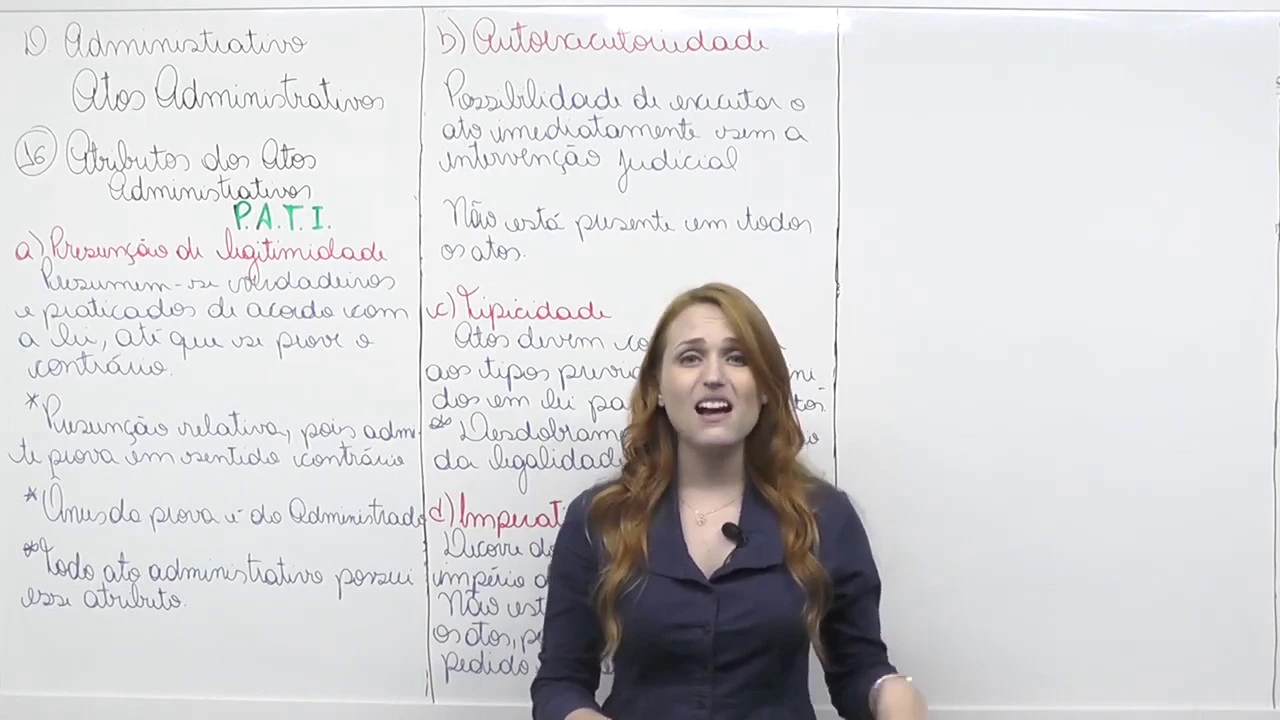 D Administrativo
Atos Administrativos
16 Atributos dos Atos
Administrativos
P.A.T.I.
a) Presunção de legitimidade
Presumem-se verdadeiros
e praticados de acordo com
a lei, até que se prove o
contrário.
* Presunção relativa, pois admi-
te prova em sentido contrário
* Ônus da prova é do Administrado
* Todo ato administrativo possui
esse atributo.
b) Autoexecutoriedade
Possibilidade de executar o
ato imediatamente sem a
intervenção judicial
Não está presente em todos
os atos.
c) Tipicidade
Atos devem
aos tipos
dos em lei
* 
da legalidade
d)
Decorre
império
Não
os atos,
pedido